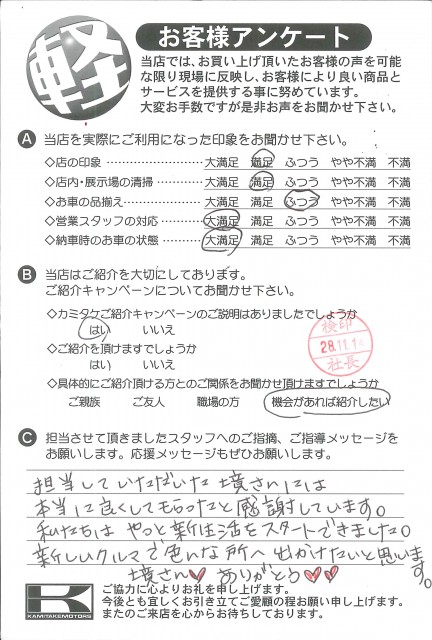 軽
お客様アンケート
当店では、お買い上げ頂いたお客様の声を可能
な限り現場に反映し、お客様により良い商品と
サービスを提供する事に努めています。
大変お手数ですが是非お声をお聞かせ下さい。
A 当店を実際にご利用になった印象をお聞かせ下さい。
◇店の印象 ………………………… 大満足 満足 ふつう やや不満 不満
◇店内・展示場の清掃 …………… 大満足 満足 ふつう やや不満 不満
◇お車の品揃え …………………… 大満足 満足 ふつう やや不満 不満
◇営業スタッフの対応 …………… 大満足 満足 ふつう やや不満 不満
◇納車時のお車の状態 …………… 大満足 満足 ふつう やや不満 不満
B 当店はご紹介を大切にしております。
ご紹介キャンペーンについてお聞かせ下さい。
◇カミタケご紹介キャンペーンのご説明はありましたでしょうか
はい いいえ
◇ご紹介を頂けますでしょうか
はい いいえ
検印
28.11.14
社長
◇具体的にご紹介頂ける方とのご関係をお聞かせ頂けますでしょうか
ご親族 ご友人 職場の方 機会があれば紹介したい
C 担当させて頂きましたスタッフへのご指摘、ご指導メッセージを
お願いします。応援メッセージもぜひお願いします。
担当していただいた境さんには
本当に良くしてもらったと感謝しています。
私たちは やっと新生活をスタートできました。
新しいクルマで色んな所へ出かけたいと思います。
境さん♥ ありがとう♥♥
K
KAMITAKEMOTORS
ご協力に心よりお礼を申し上げます。
今後とも宜しくお引き立てご愛顧の程お願い申し上げます。
またのご来店を心からお待ちしております。